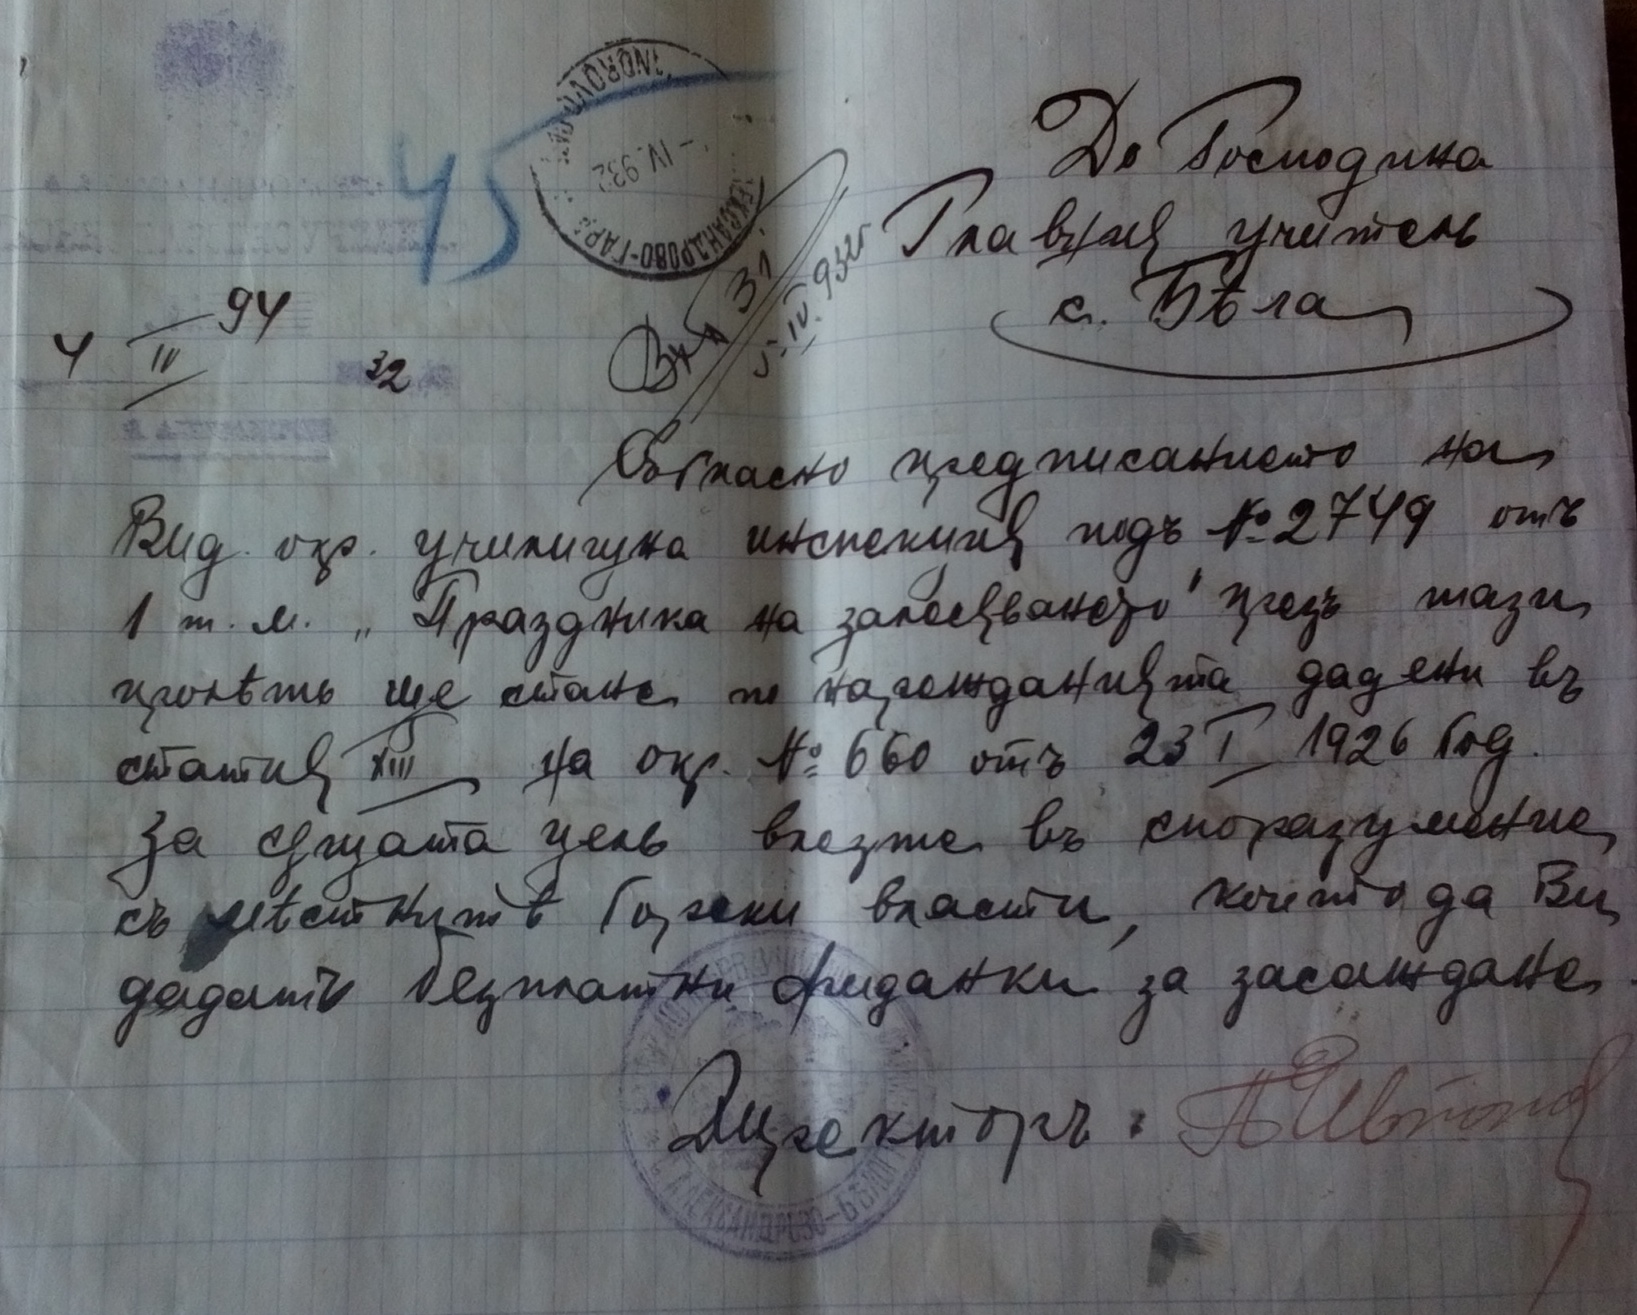 45
- IV. 932
АЛЕКСАНДРОВО-ГАРА
До Господина
Главния учитель
с. Бѣла
94
4 IV 32
Вх № 31
5. IV. 932
Съгласно предписанието на
Вид. окр. училищна инспекция подъ № 2749 отъ
1 т. м. „Праздника на залесяването" презъ тази
пролѣть ще стане по нарежданията дадени въ
статия XIII на окр. № 660 отъ 23 I 1926 год.
За сѫщата цель влезте въ споразумение
съ мѣстнитѣ горски власти, които да Ви
дадатъ безплатни фиданки за засаждане.
Директоръ: